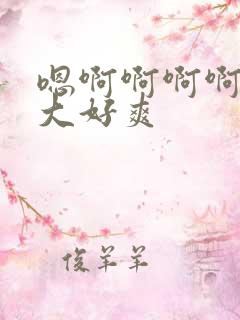 嗯啊啊啊啊
大好爽
俊羊羊